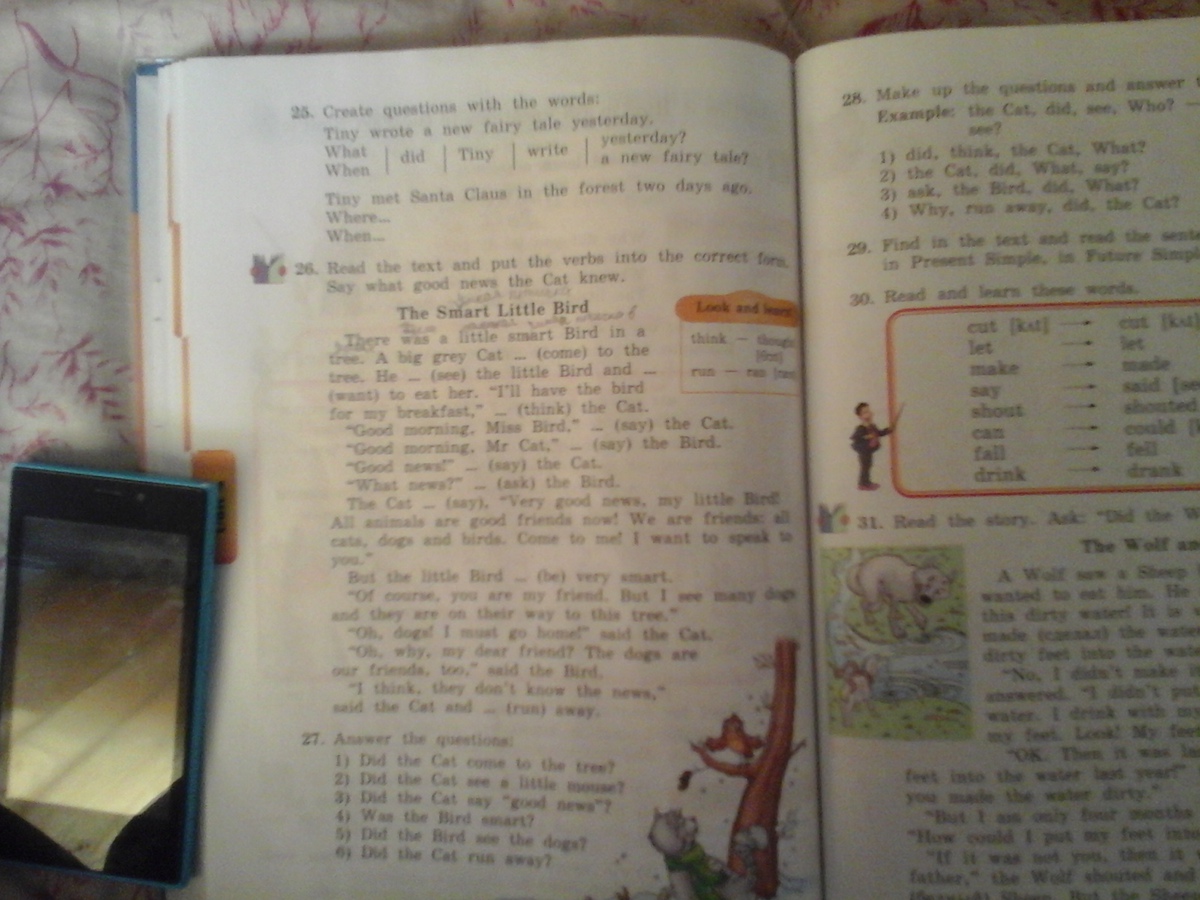 25. Create questions with the words:
Tiny wrote a new fairy tale yesterday.
What | did | Tiny | write | yesterday?
When a new fairy tale?
Tiny met Santa Claus in the forest two days ago.
Where...
When...
26. Read the text and put the verbs into the correct form.
Say what good news the Cat knew.
The Smart Little Bird
There was a little smart Bird in a
tree. A big grey Cat ... (come) to the
tree. He ... (see) the little Bird and ...
(want) to eat her. “I’ll have the bird
for my breakfast,” ... (think) the Cat.
“Good morning, Miss Bird,” ... (say) the Cat.
“Good morning, Mr Cat,” ... (say) the Bird.
“Good news!” ... (say) the Cat.
“What news?” ... (ask) the Bird.
The Cat ... (say), “Very good news, my little Bird!
All animals are good friends now! We are friends: all
cats, dogs and birds. Come to me! I want to speak to
you.”
But the little Bird ... (be) very smart.
“Of course, you are my friend. But I see many dogs
and they are on their way to this tree.”
“Oh, dogs! I must go home!” said the Cat.
“Oh, why, my dear friend? The dogs are
our friends, too,” said the Bird.
“I think, they don’t know the news,”
said the Cat and ... (run) away.
Look and learn!
think — though
run — ran
27. Answer the questions:
1) Did the Cat come to the tree?
2) Did the Cat see a little mouse?
3) Did the Cat say “good news”?
4) Was the Bird smart?
5) Did the Bird see the dogs?
6) Did the Cat run away?
28. Make up the questions and answer
Example: the Cat, did, see, Who? —
see?
1) did, think, the Cat, What?
2) the Cat, did, What, say?
3) ask, the Bird, did, What?
4) Why, run away, did, the Cat?
29. Find in the text and read the sente
in Present Simple, in Future Simpl
30. Read and learn these words.
cut [kʌt] → cut [kʌt]
let → let
make → made
say → said [se
shout → shouted
can → could
fall → fell
drink → drank
31. Read the story. Ask: “Did the W
The Wolf an
A Wolf saw a Sheep
wanted to eat him. He
this dirty water! It is
made (сделал) the wate
dirty feet into the wate
“No, I didn’t make
answered. “I didn’t pu
water. I drink with my
my feet. Look! My fee
“OK. Then it was la
feet into the water last year!”
you made the water dirty.”
“But I am only four months
“How could I put my feet into
“If it was not you, then it
father,” the Wolf shouted and
Sheep. But the Shee